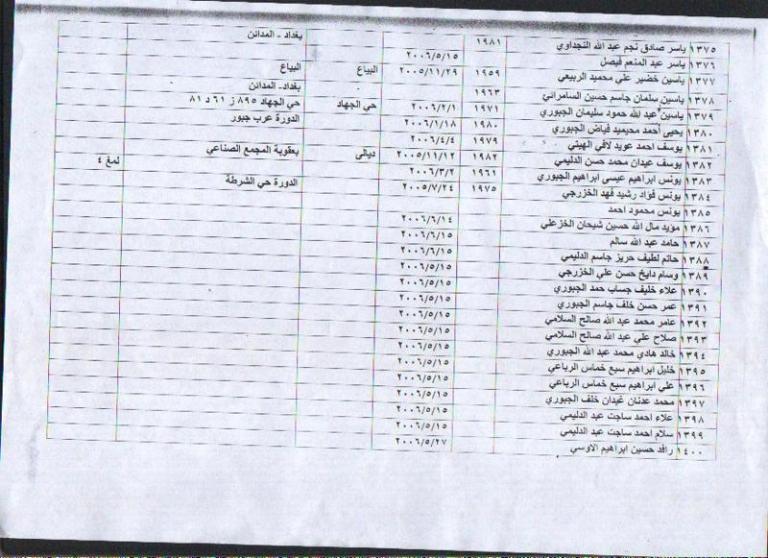 ١٣٧٥ ياسر صادق نجم عبد الله النجداوي ١٩٨١ بغداد - المدائن
١٣٧٦ ياسر عبد المنعم فيصل ٢٠٠٦/٥/١٥
١٣٧٧ ياسين خضير علي محميد الربيعي ١٩٥٩ ٢٠٠٥/١١/٢٩ البياع البياع
١٣٧٨ ياسين سلمان جاسم حسين السامرائي ١٩٦٣ بغداد- المدائن
١٣٧٩ ياسين عبد الله حمود سليمان الجبوري ١٩٧١ ٢٠٠٦/٢/١ حي الجهاد حي الجهاد ٨٩٥ ز ٦١ د ٨١
١٣٨٠ يحيى احمد محيميد فياض الجبوري ١٩٨٠ ٢٠٠٦/١/١٨ الدورة عرب جبور
١٣٨١ يوسف احمد عويد لافي الهيتي ١٩٧٩ ٢٠٠٦/٤/٤
١٣٨٢ يوسف عيدان محمد حسن الدليمي ١٩٨٢ ٢٠٠٥/١١/١٢ ديالى بعقوبة المجمع الصناعي ٤
١٣٨٣ يونس ابراهيم عيسى ابراهيم الجبوري ١٩٦١ ٢٠٠٦/٣/٢
١٣٨٤ يونس فؤاد رشيد فهد الخزرجي ١٩٧٥ ٢٠٠٥/٧/٢٤ الدورة حي الشرطة
١٣٨٥ يونس محمود احمد
١٣٨٦ مؤيد مال الله حسين شيحان الخزعلي ٢٠٠٦/٦/١٤
١٣٨٧ حامد عبد الله سالم ٢٠٠٦/٦/١٥
١٣٨٨ حاتم لطيف حريز جاسم الدليمي ٢٠٠٦/٦/١٥
١٣٨٩ وسام دايخ حسن علي الخزرجي ٢٠٠٦/٥/١٥
١٣٩٠ علاء خليف جساب حمد الجبوري ٢٠٠٦/٥/١٥
١٣٩١ عمر حسن خلف جاسم الجبوري ٢٠٠٦/٥/١٥
١٣٩٢ عامر محمد عبد الله صالح السلامي ٢٠٠٦/٥/١٥
١٣٩٣ صلاح علي عبد الله صالح السلامي ٢٠٠٦/٥/١٥
١٣٩٤ خالد هادي محمد عبد الله الجبوري ٢٠٠٦/٥/١٥
١٣٩٥ خليل ابراهيم سبع خماس الرباعي ٢٠٠٦/٥/١٥
١٣٩٦ علي ابراهيم سبع خماس الرباعي ٢٠٠٦/٥/١٥
١٣٩٧ محمد عدنان غيدان خلف الجبوري ٢٠٠٦/٥/١٥
١٣٩٨ علاء احمد ساجت عبد الدليمي ٢٠٠٦/٥/١٥
١٣٩٩ سلام احمد ساجت عبد الدليمي ٢٠٠٦/٥/١٥
١٤٠٠ رافد حسين ابراهيم الاوسي ٢٠٠٦/٥/٢٧